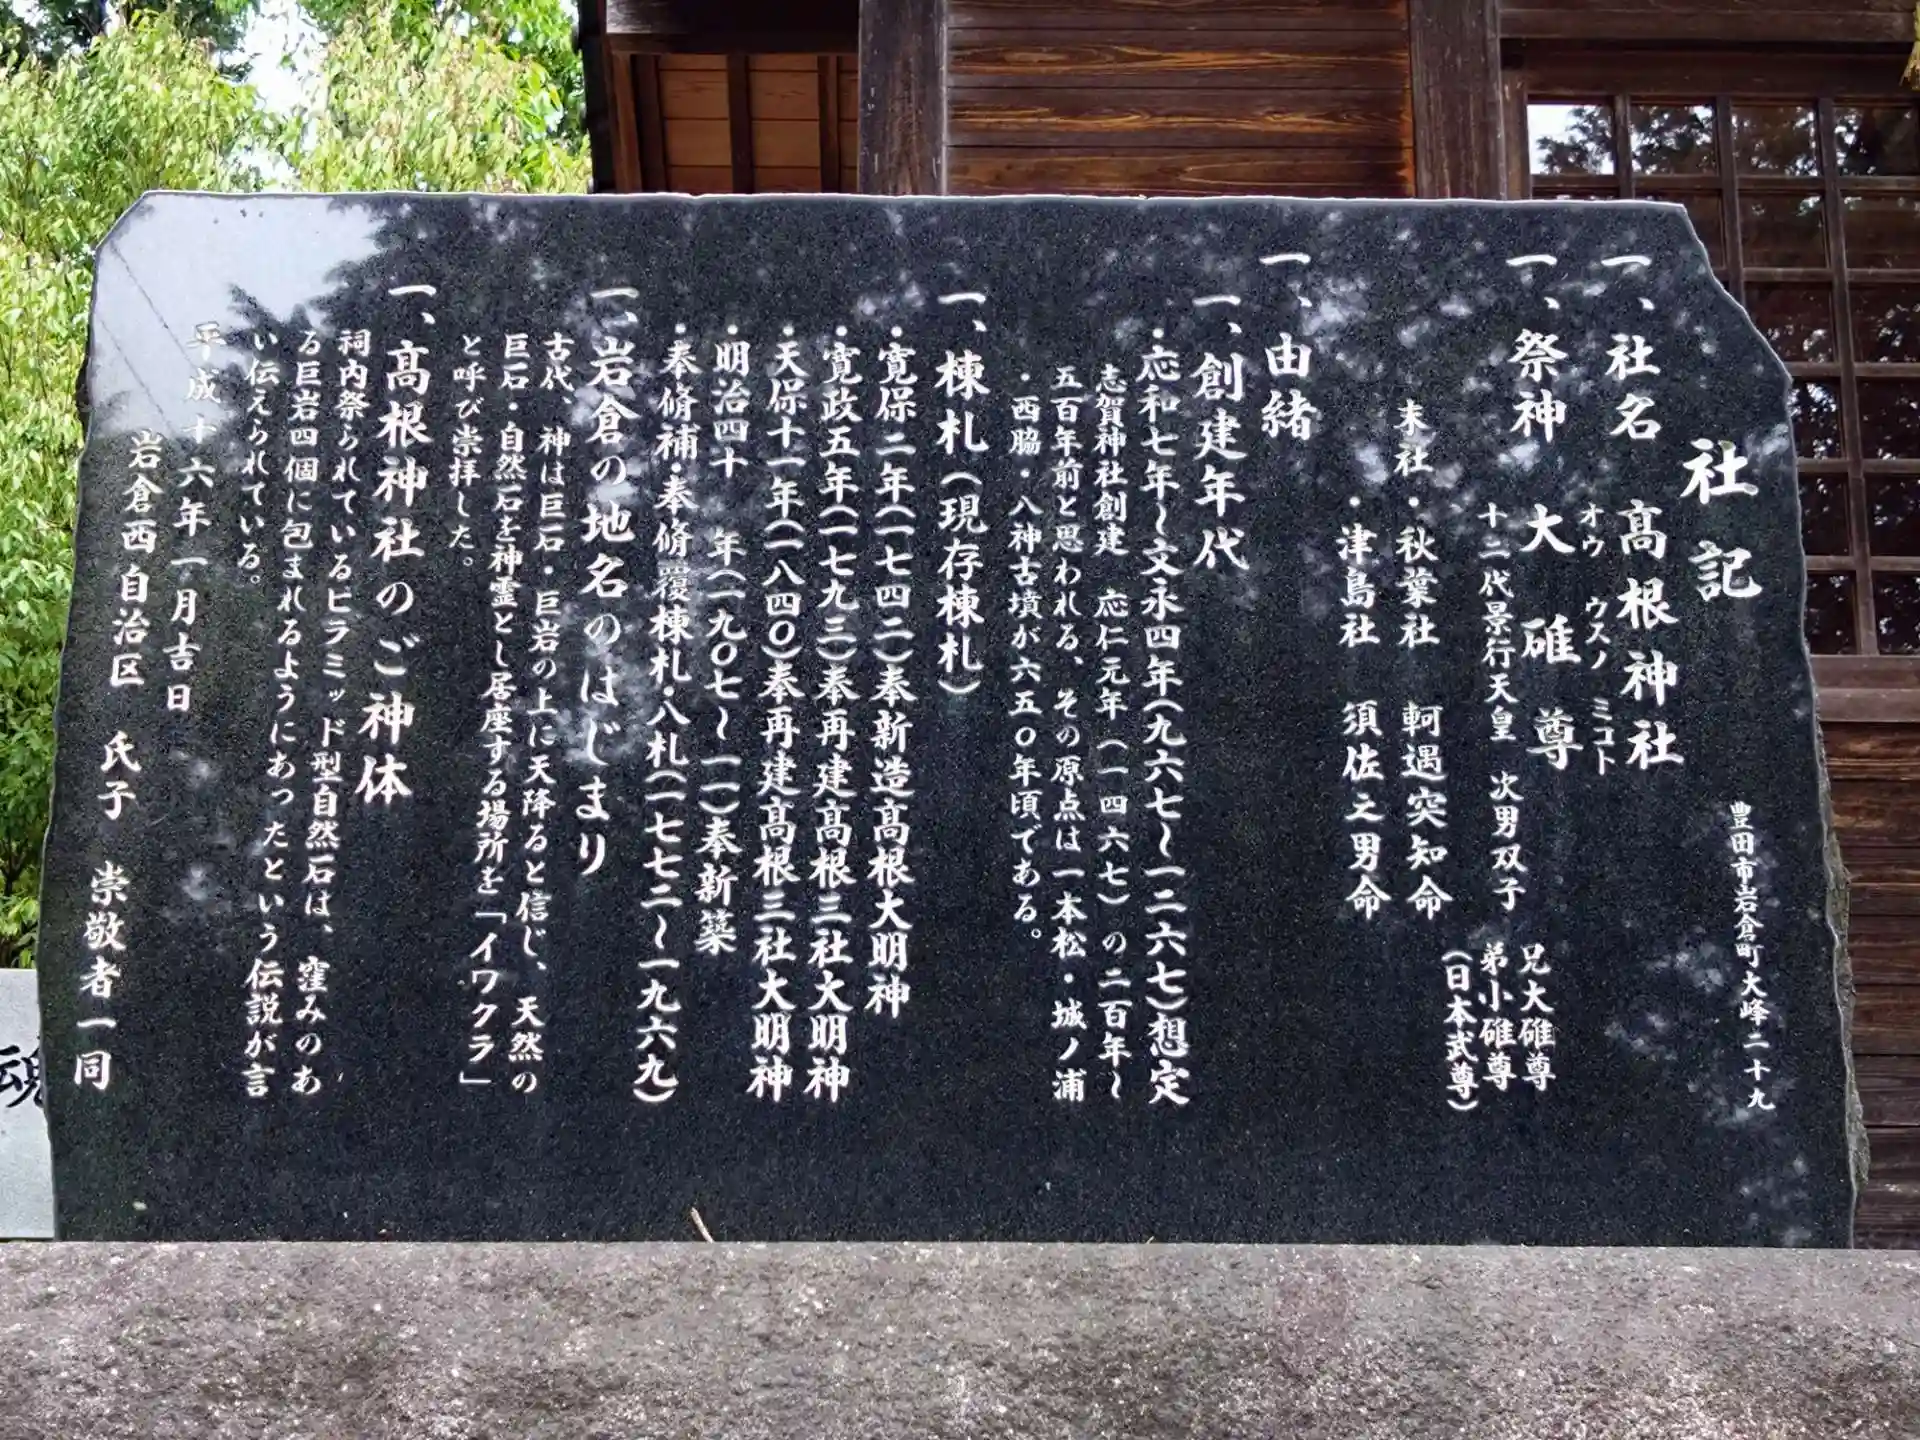 社記
豊田市岩倉町大峰二十九
一、社名　髙根神社
オウ　ウスノ　ミコト
一、祭神　大碓尊
十二代景行天皇　次男双子
兄大碓尊
弟小碓尊
（日本武尊）
末社・秋葉社　軻遇突知命
・津島社　須佐之男命
一、由緒
一、創建年代
・応和七年～文永四年（九六七～一二六七）想定
志賀神社創建　応仁元年（一四六七）の二百年～
五百年前と思われる、その原点は一本松・城ノ浦
・西脇・八神古墳が六五〇年頃である。
一、棟札（現存棟札）
・寛保二年（一七四二）奉新造髙根大明神
・寛政五年（一七九三）奉再建髙根三社大明神
・天保十一年（一八四〇）奉再建髙根三社大明神
・明治四十　年（一九〇七～一一）奉新築
・奉脩補・奉脩覆棟札・八札（一七七二～一九六九）
一、岩倉の地名のはじまり
古代、神は巨石・巨岩の上に天降ると信じ、天然の
巨石・自然石を神霊とし居座する場所を「イワクラ」
と呼び崇拝した。
一、髙根神社のご神体
祠内祭られているピラミッド型自然石は、窪みのあ
る巨岩四個に包まれるようにあったという伝説が言
い伝えられている。
平成十六年一月吉日
岩倉西自治区　氏子　崇敬者一同
魂